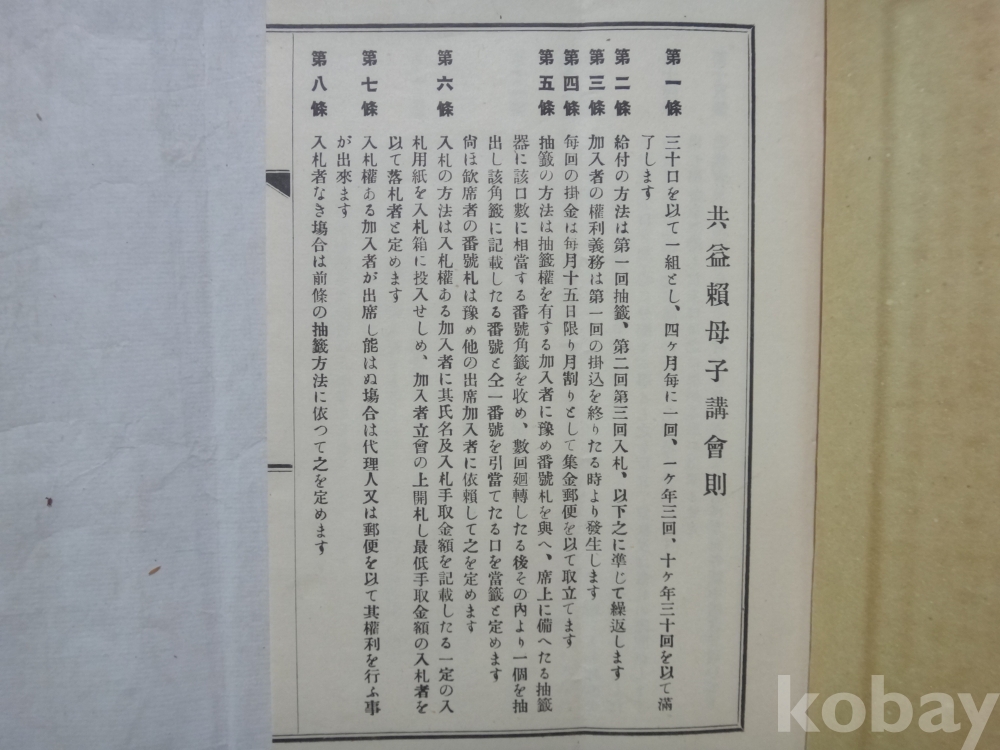 共益賴母子講會則
第一條 三十口を以て一組とし、四ヶ月每に一回、一ケ年三回、十ケ年三十回を以て滿
了します
第二條 給付の方法は第一回抽籤、第二回第三回入札、以下之に準じて繰返します
第三條 加入者の權利義務は第一回の掛込を終りたる時より發生します
第四條 每回の掛金は每月十五日限り月割りとして集金郵便を以て取立てます
第五條 抽籤の方法は抽籤權を有する加入者に豫め番號札を與へ、席上に備へたる抽籤
器に該口數に相當する番號角籤を收め、數回廻轉したる後その內より一個を抽
出し該角籤に記載したる番號と仝一番號を引當てたる口を當籤と定めます
尙ほ缺席者の番號札は豫め他の出席加入者に依賴して之を定めます
第六條 入札の方法は入札權ある加入者に其氏名及入札手取金額を記載したる一定の入
札用紙を入札箱に投入せしめ、加入者立會の上開札し最低手取金額の入札者を
以て落札者と定めます
第七條 入札權ある加入者が出席し能はぬ塲合は代理人又は郵便を以て其權利を行ふ事
が出來ます
第八條 入札者なき塲合は前條の抽籤方法に依つて之を定めます
kobay